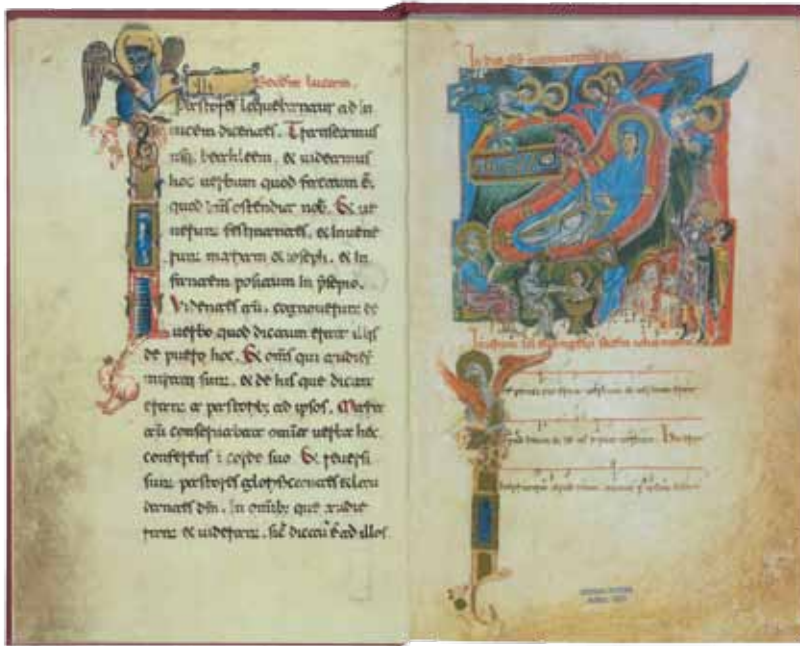 Secdm lucam.
Pastores loquebantur ad in
uicem dicentes. Transeamus
usq; bethleem, & uideamus
hoc uerbum quod factum ē,
quod dn̄s ostendit nob. Et ue
nerunt festinantes, & inuene
runt mariam & ioseph, & in
fantem positum in p̄sepio.
Videntes aū, cognouerunt de
uerbo quod dictum erat illis
de puero hoc. Et om̄s qui audier̄
mirati sunt, & de his que dicta
erant a pastorib; ad ipsos. Maria
aū conseruabat omīa uerba hec
conferens ī corde suo Et reuersi
sunt pastores glorificantes & lau
dantes dm̄, in omīb; que audie
rant & uiderant, sic̄ dictū ē ad illos
erat uerbum & uerbum erat
apud deum & erat uerbum. Hoc erat
apud deum. omnia ipsum